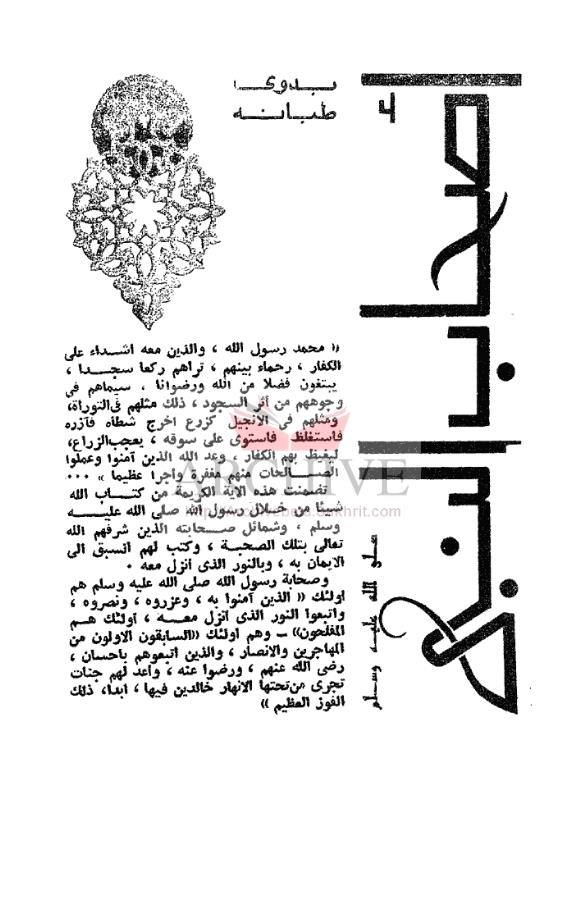 أصحاب النبي
صلى الله عليه وسلم
بدوى
طبانه
« محمد رسول الله ، والذين معه اشداء على
الكفار ، رحماء بينهم ، تراهم ركعا سجدا ،
يبتغون فضلا من الله ورضوانا ، سيماهم فى
وجوههم من أثر السجود ، ذلك مثلهم فى التوراة،
ومثلهم فى الانجيل كزرع اخرج شطأه فآزره
فاستغلظ فاستوى على سوقه ، يعجب الزراع،
ليغيظ بهم الكفار ، وعد الله الذين آمنوا وعملوا
الصالحات منهم مغفرة وأجرا عظيما » ...
تضمنت هذه الآية الكريمة من كتاب الله
شيئا من خلال رسول الله صلى الله عليه
وسلم ، وشمائل صحابته الذين شرفهم الله
تعالى بتلك الصحبة ، وكتب لهم السبق الى
الايمان به ، وبالنور الذى انزل معه .
وصحابة رسول الله صلى الله عليه وسلم هم
اولئك « الذين آمنوا به ، وعزروه ، ونصروه ،
واتبعوا النور الذى انزل معه ، اولئك هم
المفلحون» ـ وهم اولئك «السابقون الاولون من
المهاجرين والانصار ، والذين اتبعوهم باحسان ،
رضى الله عنهم ، ورضوا عنه ، واعد لهم جنات
تجرى من تحتها الانهار خالدين فيها ، ابدا، ذلك
الفوز العظيم »
ARCHIVE